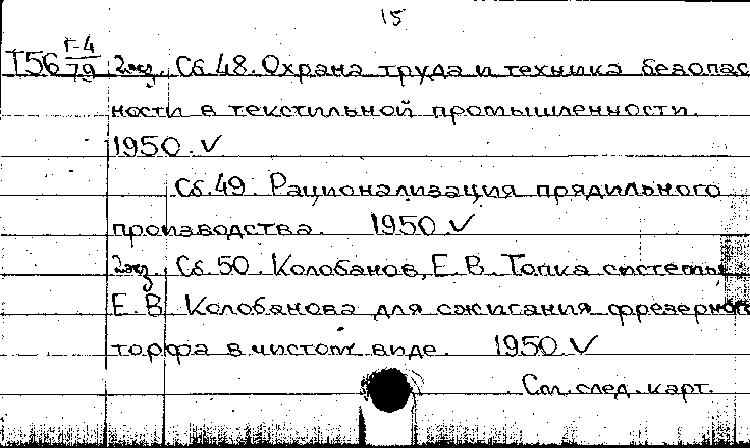 15
Т56 Г-4/79 2экз. Сб.48. Охрана труда и техника безопас
ности в текстильной промышленности.
1950. V
Сб.49. Рационализация прядильного
производства. 1950. V
2экз. Сб.50. Колобанов, Е. В. Топка системы
Е. В. Колобанова для сжигания фрезерного
торфа в чистом виде. 1950. V
См. след. карт.